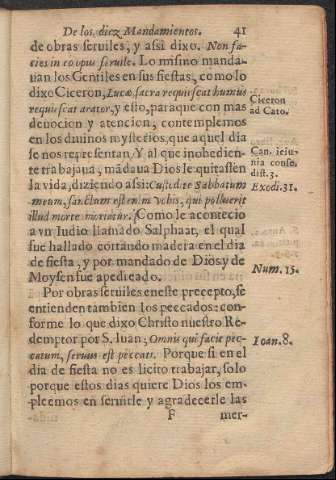 De los diez Mandamientos. 41
de obras seruiles, y assi dixo. Non fa-
cies in eo opus seruile. Lo mismo manda-
uan los Gentiles en sus fiestas, como lo
dixo Ciceron, Lucus sacra requiescat humus
requiescat arator, y esto, paraque con mas
deuocion y atencion, contemplemos
en los diuinos mysterios, que aquel dia
se nos representan. Y al que inobedien-
te trabajaua, mãdaua Dios le quitassen
la vida, diziendo assi: Custodite Sabbatum
meum, sanctum est enim vobis, qui polluerit
illud morte morietur. Como le acontecio
a vn Iudio llamado Salphaat, el qual
fue hallado cortando madera en el dia
de fiesta, y por mandado de Dios, y de
Moysen fue apedreado.
Por obras seruiles en este precepto, se
entienden tambien los peccados: con-
forme lo que dixo Christo nuestro Re-
demptor por S. Iuan; Omnis qui facit pec-
catum, seruus est peccati. Porque si en el
dia de fiesta no es licito trabajar, solo
porque estos dias quiere Dios los em-
pleemos en seruirle y agradecerle las
F mer-
Ciceron
ad Cato.
Can. ieiu-
nia conse.
dist. 3.
Exodi. 31.
Num. 15.
Ioan. 8.